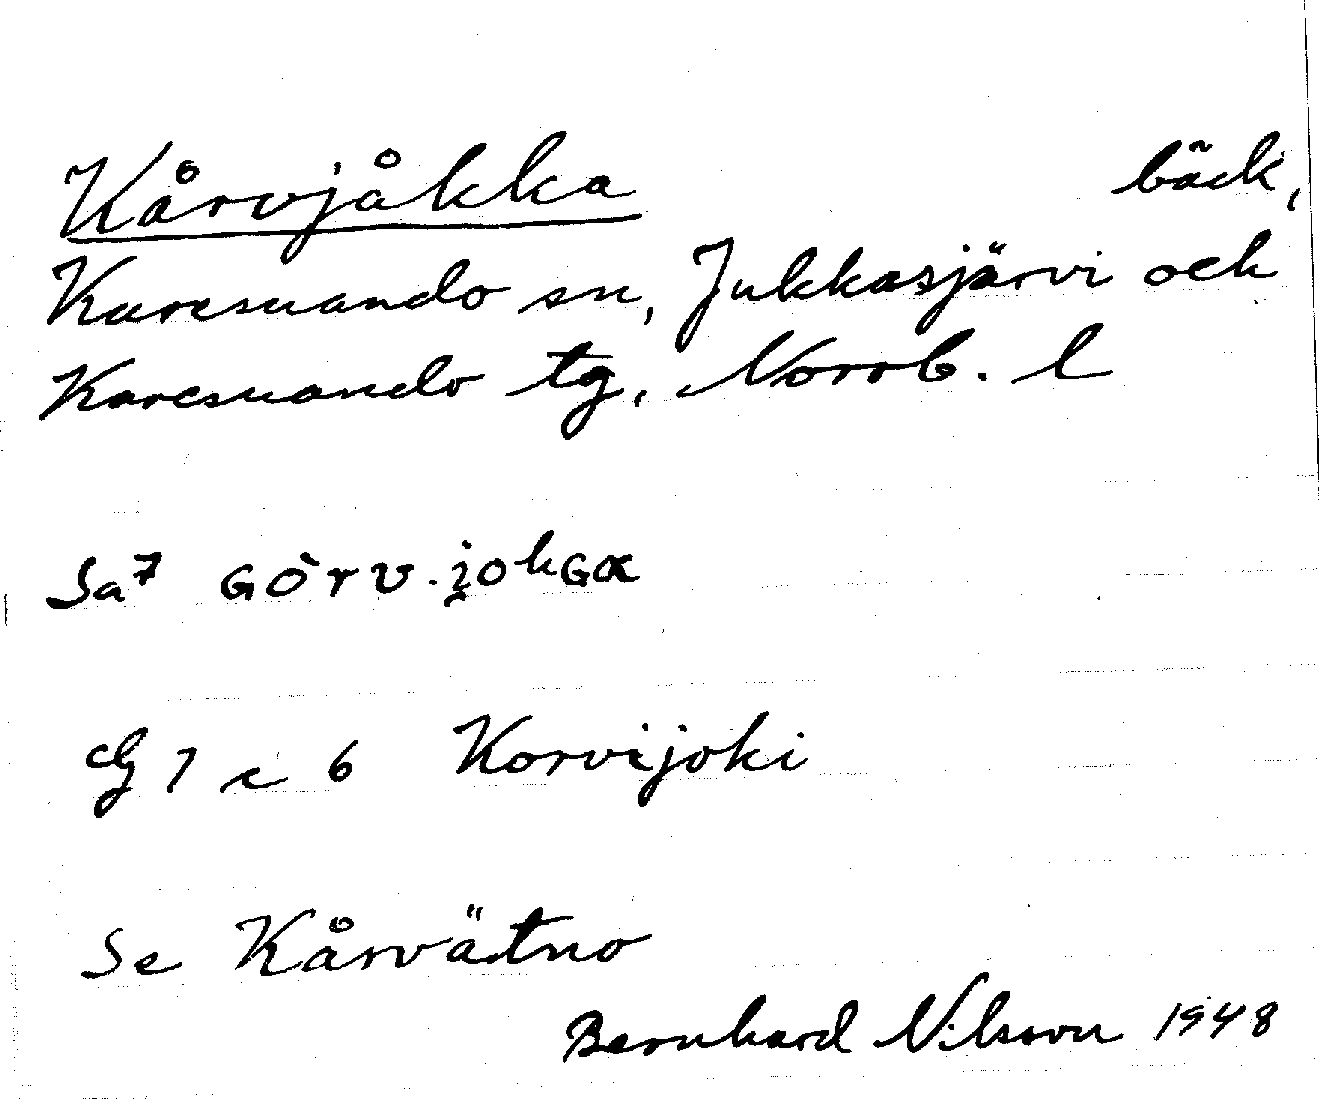 Kårvjåkka bäck,
Karesuando sn, Jukkasjärvi och
Karesuando tg, Norrb. l
Sa⁷ GÒrv.i̯oʰGɑ
G 7 c 6 Korvijoki
Se Kårvätno
Bernhard Nilsson 1948